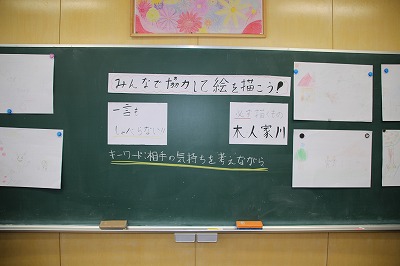 みんなで協力して絵を描こう!
一言も
しゃべらない!!
必ず描くもの
木人家川
キーワード:相手の気持ちを考えながら